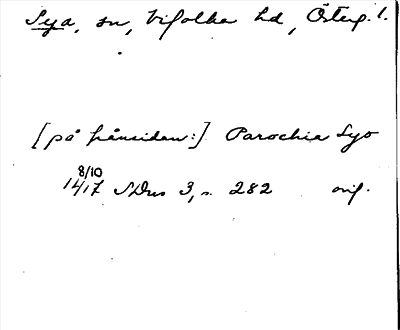 Sya, sn, Vifolka hd, Österg. l.
[på frånsidan:] Parochia Syo
8/10
1417 SDns 3, s. 282 orig.